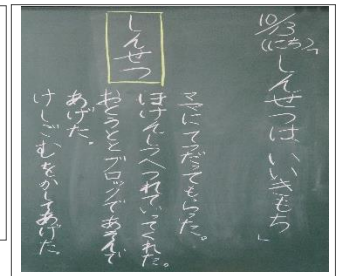 10/3
(にち)
「しんせつは いいきもち」
ママにてつだってもらった。
ほけんしつへつれていってくれた。
しんせつ
おとうととブロックであそんで
あげた。
けしごむをかしてあげた。